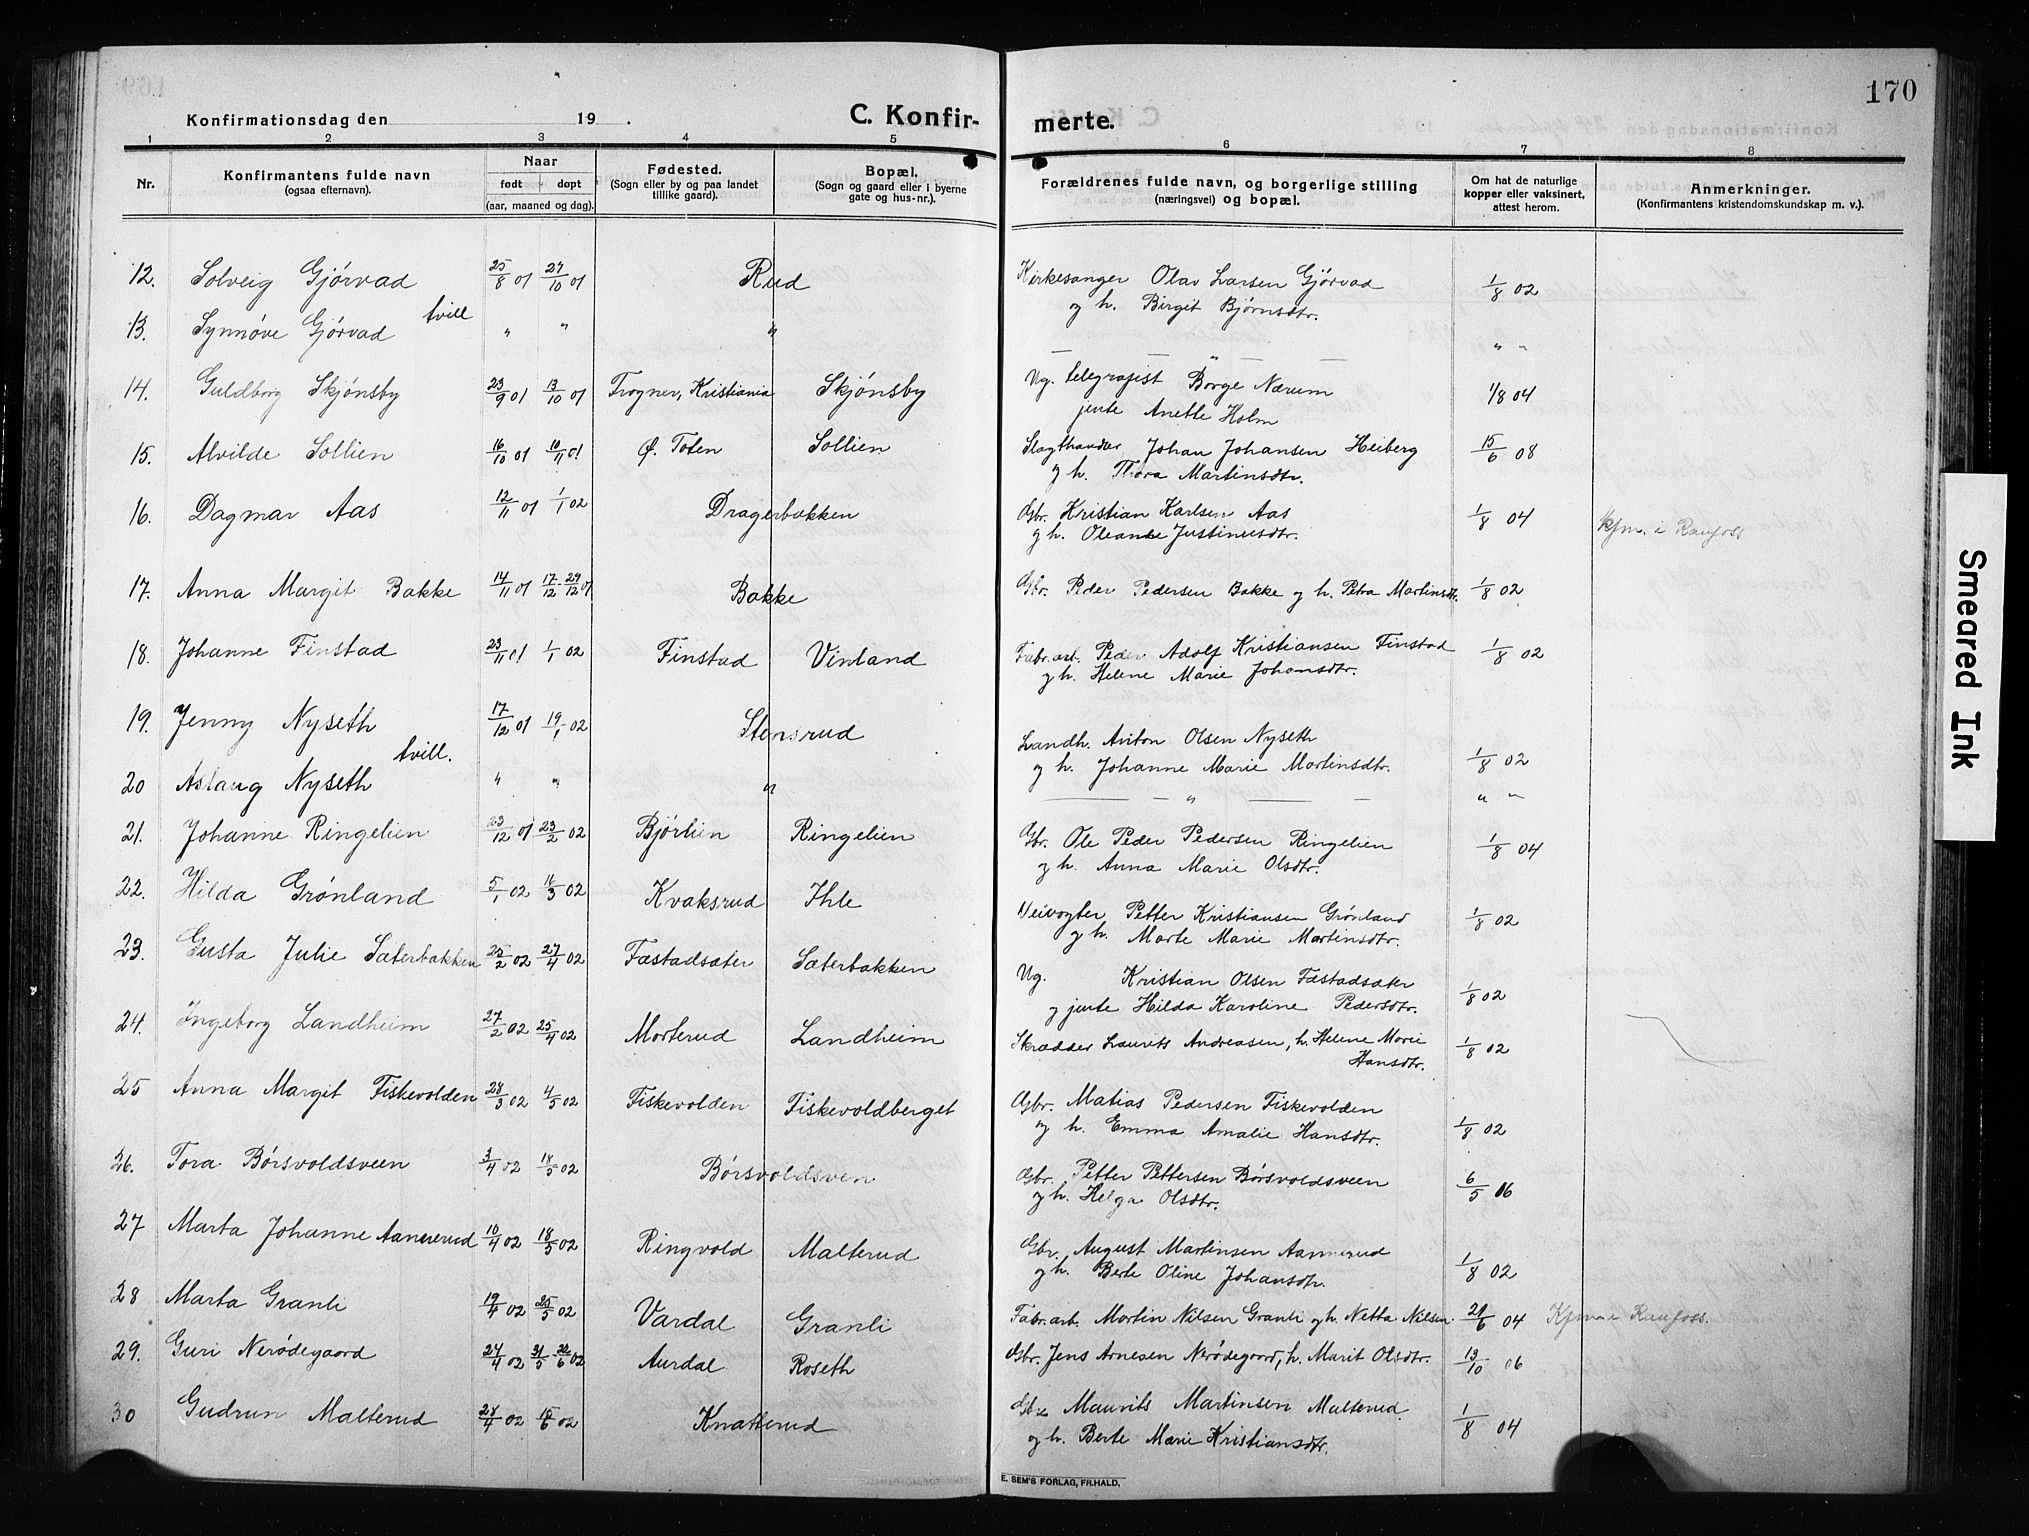 170
Konfirmationsdag den 19 .
C. Konfir-
merte.
1 2 3 4 5 6 7 8
Nr.
Konfirmantens fulde navn
(ogsaa efternavn).
Naar
født døpt
(aar, maaned og dag).
Fødested.
(Sogn eller by og paa landet
tillike gaard).
Bopæl.
(Sogn og gaard eller i byerne
gate og hus-nr.).
Forældrenes fulde navn, og borgerlige stilling
(næringsvei) og bopæl.
Om hat de naturlige
kopper eller vaksinert,
attest herom.
Anmerkninger.
(Konfirmantens kristendomskundskap m. v.).
12. Solveig Gjørvad 25/8 01 27/10 01 Rud Kirkesanger Olav Larsen Gjørvad 1/8 02
og h. Birgit Bjørnsdtr.
tvill
13. Synnøve Gjørvad " " " — — " — — " "
14. Guldborg Skjønsby 23/9 01 13/10 01 Frogner, Kristiania Skjønsby Ug. telegrafist Borge Nærum 1/8 04
jente Anette Holm
15. Alvilde Sollien 16/10 01 10/11 01 Ø. Toten Sollien Slagthandler Johan Johansen Heiberg 15/6 08
og h. Thora Martinsdtr.
16. Dagmar Aas 12/11 01 1/1 02 Dragerbakken Gbr. Kristian Karlsen Aas 1/8 04 Kfm. i Raufoss
og h. Oleanke Justinusdtr.
17. Anna Margit Bakke 14/11 01 17/12 29/12 01 Bakke Gbr. Peder Pedersen Bakke og h. Petra Martinsdtr. 1/8 02
18. Johanne Finstad 23/11 01 1/1 02 Finstad Vinland Fabr.arb. Peder Adolf Kristiansen Finstad 1/8 02
og h. Helene Marie Johansdtr.
19. Jenny Nyseth 17/12 01 19/1 02 Stensrud Landh. Anton Olsen Nyseth
tvill. og h. Johanne Marie Martinsdtr. 1/8 02
20 Aslaug Nyseth " " " — — " — — " "
21. Johanne Ringelien 23/12 01 23/2 02 Bjørlien Ringelien Gbr. Ole Peder Pedersen Ringelien 1/8 04
og h. Anna Marie Olsdtr.
22. Hilda Grønland 5/1 02 16/3 02 Kvaksrud Ihle Veivogter Petter Kristiansen Grønland 1/8 02
og h. Marte Marie Martinsdtr.
23. Gusta Julie Sæterbakken 25/2 02 27/4 02 Fæstadsæter Sæterbakken Ug. Kristian Olsen Fæstadsæter 1/8 02
og jente Hilda Karoline Pedersdtr.
24. Ingeborg Landheim 27/2 02 25/4 02 Morterud Landheim Skrædder Laurits Andreasen, h. Helene Marie 1/8 02
Hansdtr.
25 Anna Margit Fiskevolden 28/3 02 4/5 02 Fiskevolden Fiskevoldberget Gbr. Matias Pedersen Fiskevolden
og h. Emma Amalie Hansdtr. 1/8 02
26. Tora Børsvoldsveen 3/4 02 18/5 02 Børsvoldsven Gbr. Petter Pettersen Børsvoldsveen 6/5 16
og h. Helga Olsdtr.
27 Marta Johanne Aannerud 10/4 02 18/5 02 Ringvold Malterud Gbr. August Martinsen Aannerud
og h. Berte Oline Johansdtr. 1/8 02
28 Marta Granli 19/4 02 25/5 02 Vardal Granli Fabr.arb. Martin Nilsen Granli og h. Netta Nilsen 21/6 04 Kfm. i Raufoss.
29. Guri Nerødegaard 24/4 02 31/5 22/6 02 Aurdal Roseth Gbr. Jens Arnesen Nerødegaard, h. Marit Olsdtr. 13/10 06
30 Gudrun Malterud 28/4 02 15/6 02 Knatterud Gbr Maurits Martinsen Malterud. 1/8 04
og h. Berte Marie Kristiansdtr.
E. SEM'S FORLAG, FR.HALD.
Smeared Ink